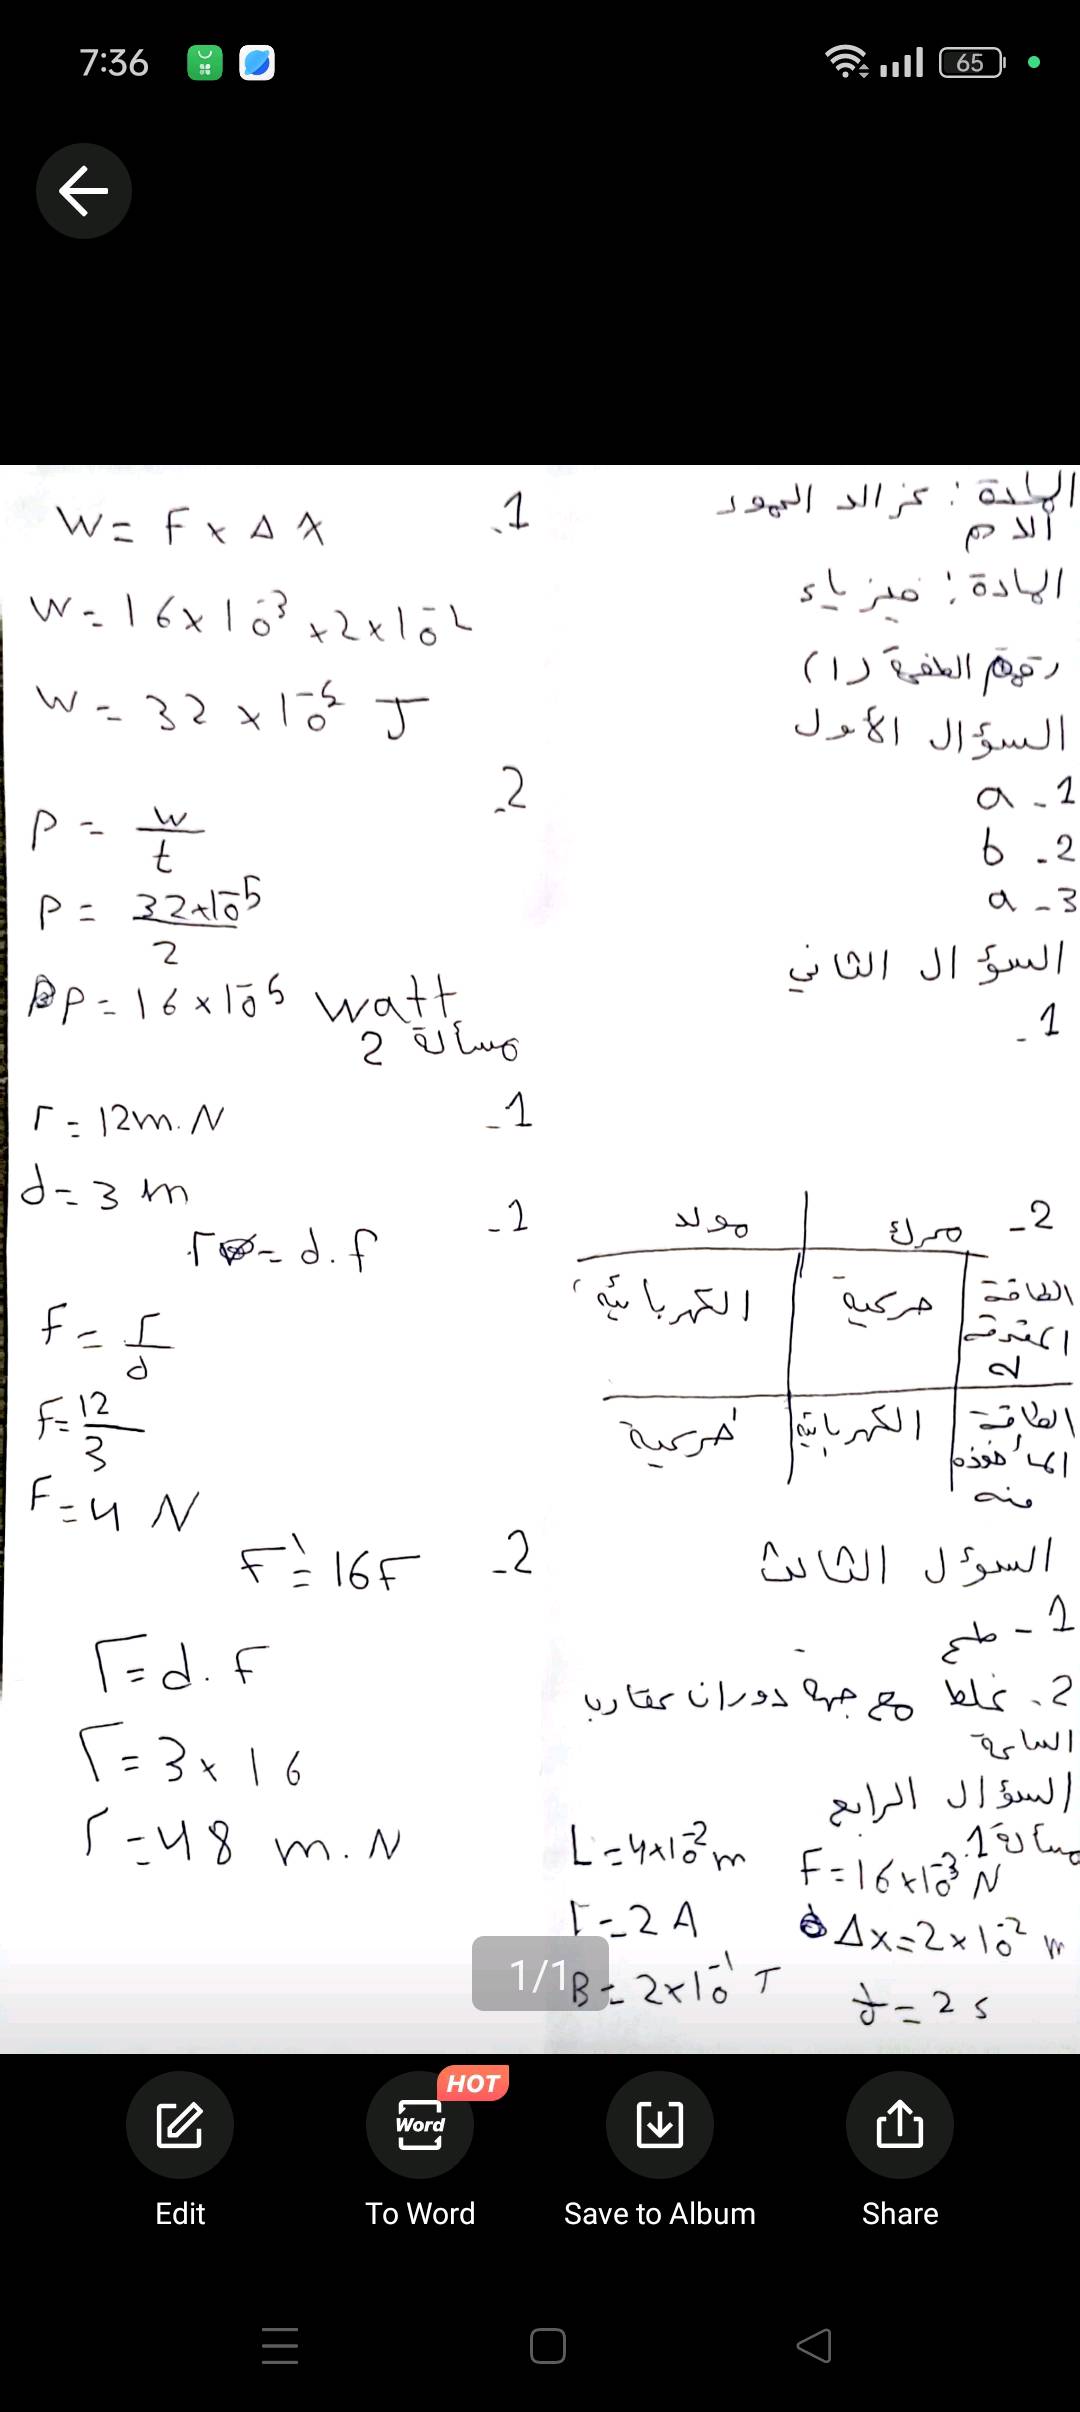 7:36
65
المادة: عز الد السهور
الا م
المادة: فيزياء
(1)
السؤال الأول
1- a
2- b
3- a
السؤال الثاني
1-
2-
محرك
مولد
الطاقة
حركية
الكهربائية
الطاقة
المأخوذه
منه
الكهربائية
حركية
السوءل الثالث
1-
2- غلط مع جهة دوران عقارب
الساعة
السؤال الرابع
مسألة 1
F=16×10⁻³ N
Δx=2×10⁻² m
t=2 s
L=4×10⁻² m
I=2 A
B=2×10⁻¹ T
1.
W= F × Δ X
W=16×10⁻³ ×2×10⁻²
W= 32 ×10⁻⁵ J
2.
P= w/t
P= 32×10⁻⁵/2
P=16×10⁻⁵ watt
مسألة 2
1-
Γ=12m.N
d=3 m
1-
Γ=d.f
F=Γ/d
F=12/3
F=4 N
2-
F'=16F
Γ=d.F
Γ=3×16
Γ=48 m.N
1/1
HOT
Word
Edit
To Word
Save to Album
Share